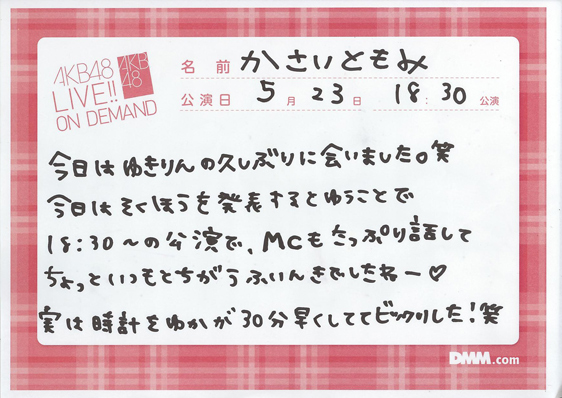 AKB48
LIVE!!
ON DEMAND
AKB
48
名前 かさいともみ
公演日 5月23日 18:30公演
今日はゆきりんの久しぶりに会いました。笑
今日はそくほうを発表するとゆうことで
18:30〜の公演で、MCもたっぷり話して
ちょっといつもとちがうふいんきでしたねー♡
実は時計をゆかが30分早くしててビックリした!笑
DMM.com